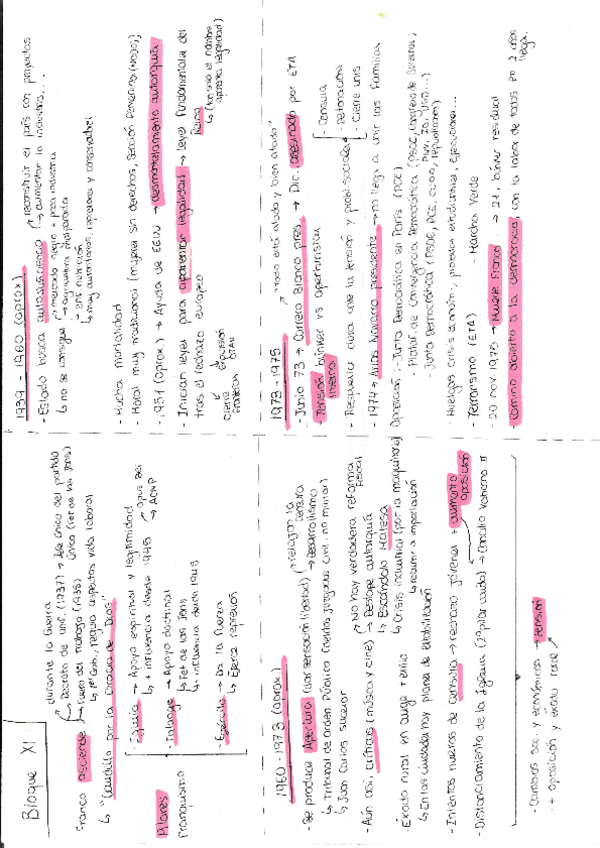 Bloque XI
durante la Guerra
Franco asciende
Decreto de unif. (1937) → Jefe único del partido
único (FET de las JONS)
Fuero del Trabajo (1938)
↳ 1er Gob., reguló aspectos vida laboral
↳ "Caudillo por la Gracia de Dios"
Pilares
Franquismo
- Iglesia → Apoyo espiritual y legitimidad
↳ + influencia desde 1945 → Opus Dei
→ ACNP
- Falange → Apoyo doctrinal
↳ Fet de las Jons
↳ - influencia desde 1945
- Ejército → Da la fuerza
↳ Ejerce represión
1939 - 1960 (aprox)
- Estado busca autosuficiencia
reconstruir el país con proyectos
↳ aumentar la industria, ...
↳ no se consigue
mercado negro + poca industria
→ agricultura
↳ nutrición
↳ muy autoritarios, represores y conservadores
- Mucha mortalidad
- Moral muy tradicional (mujeres sin derechos, Sección Femenina (NODO))
- 1951 (aprox.) → Ayuda de EEUU → desmantelamiento autarquía
- Inician leyes para aparentar legalidad → Leyes Fundamentales del
Reino
tras el rechazo europeo
↳ (tan solo el nombre
aparenta legalidad)
Cierre
frontera
Expulsión
OTAN
1960 - 1973 (aprox.)
- Se produce Apertura (+ sensación libertad)
relajan la
censura
→ Desarrollismo
↳ Tribunal de Orden Público (ciertos juzgados civil, no militar)
↳ Juan Carlos sucesor
- Aún así, críticas (música y cine)
No hay verdadera reforma
fiscal
→ Destape autarquía
↳ Escándalo Matesa
↳ Crisis industrial (por la maquinaria)
↳ recurrir a importación
- Éxodo rural en auge
↳ En las ciudades hay planes de estabilización
- Intentos nuevos de censura → rechazo jóvenes + aumento
oposición
- Distanciamiento de la Iglesia (2º pilar caído) → Concilio Vaticano II
- Cambios soc. y económicos → tensión
- + oposición y éxodo rural
1973 - 1975
"todo está atado y bien atado"
- Junio 73 → Carrero Blanco pres. → Dic. asesinado por ETA
- Tensión búnker vs aperturistas
interna
- Respuesta dura ante la tensión y probl. sociales
- Censura
- Detenciones
- Cierre unis
- 1974 → Arias Navarro presidente → no llega a unir las familias
Oposición:
- Junta Democrática en París (PCE)
- Plataf. de Convergencia Democrática (PSOE,
- Junta Democrática (PSOE, PCE, CCOO,
- Huelgas crisis económ., protestas estudiantiles, ejecuciones...
- Terrorismo (ETA) - Marcha Verde
- 20 nov. 1975 → Muere Franco → JC I, búnker residual
- Camino abierto a la democracia, con la labor de todos en 2 años
llega.